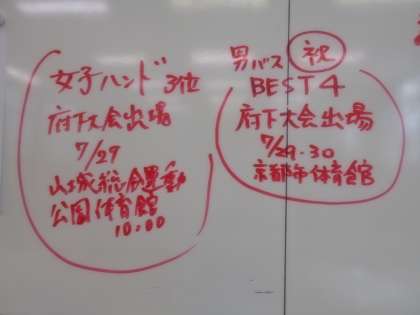 女子ハンド 3位
府下大会出場
7/29
山城総合運動
公園体育館
10:00
男バス 祝
BEST4
府下大会出場
7/29.30
京都市体育館